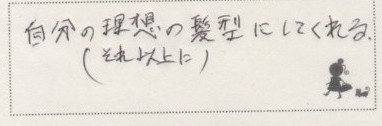 自分の理想の髪型にしてくれる.
(それ以上に)